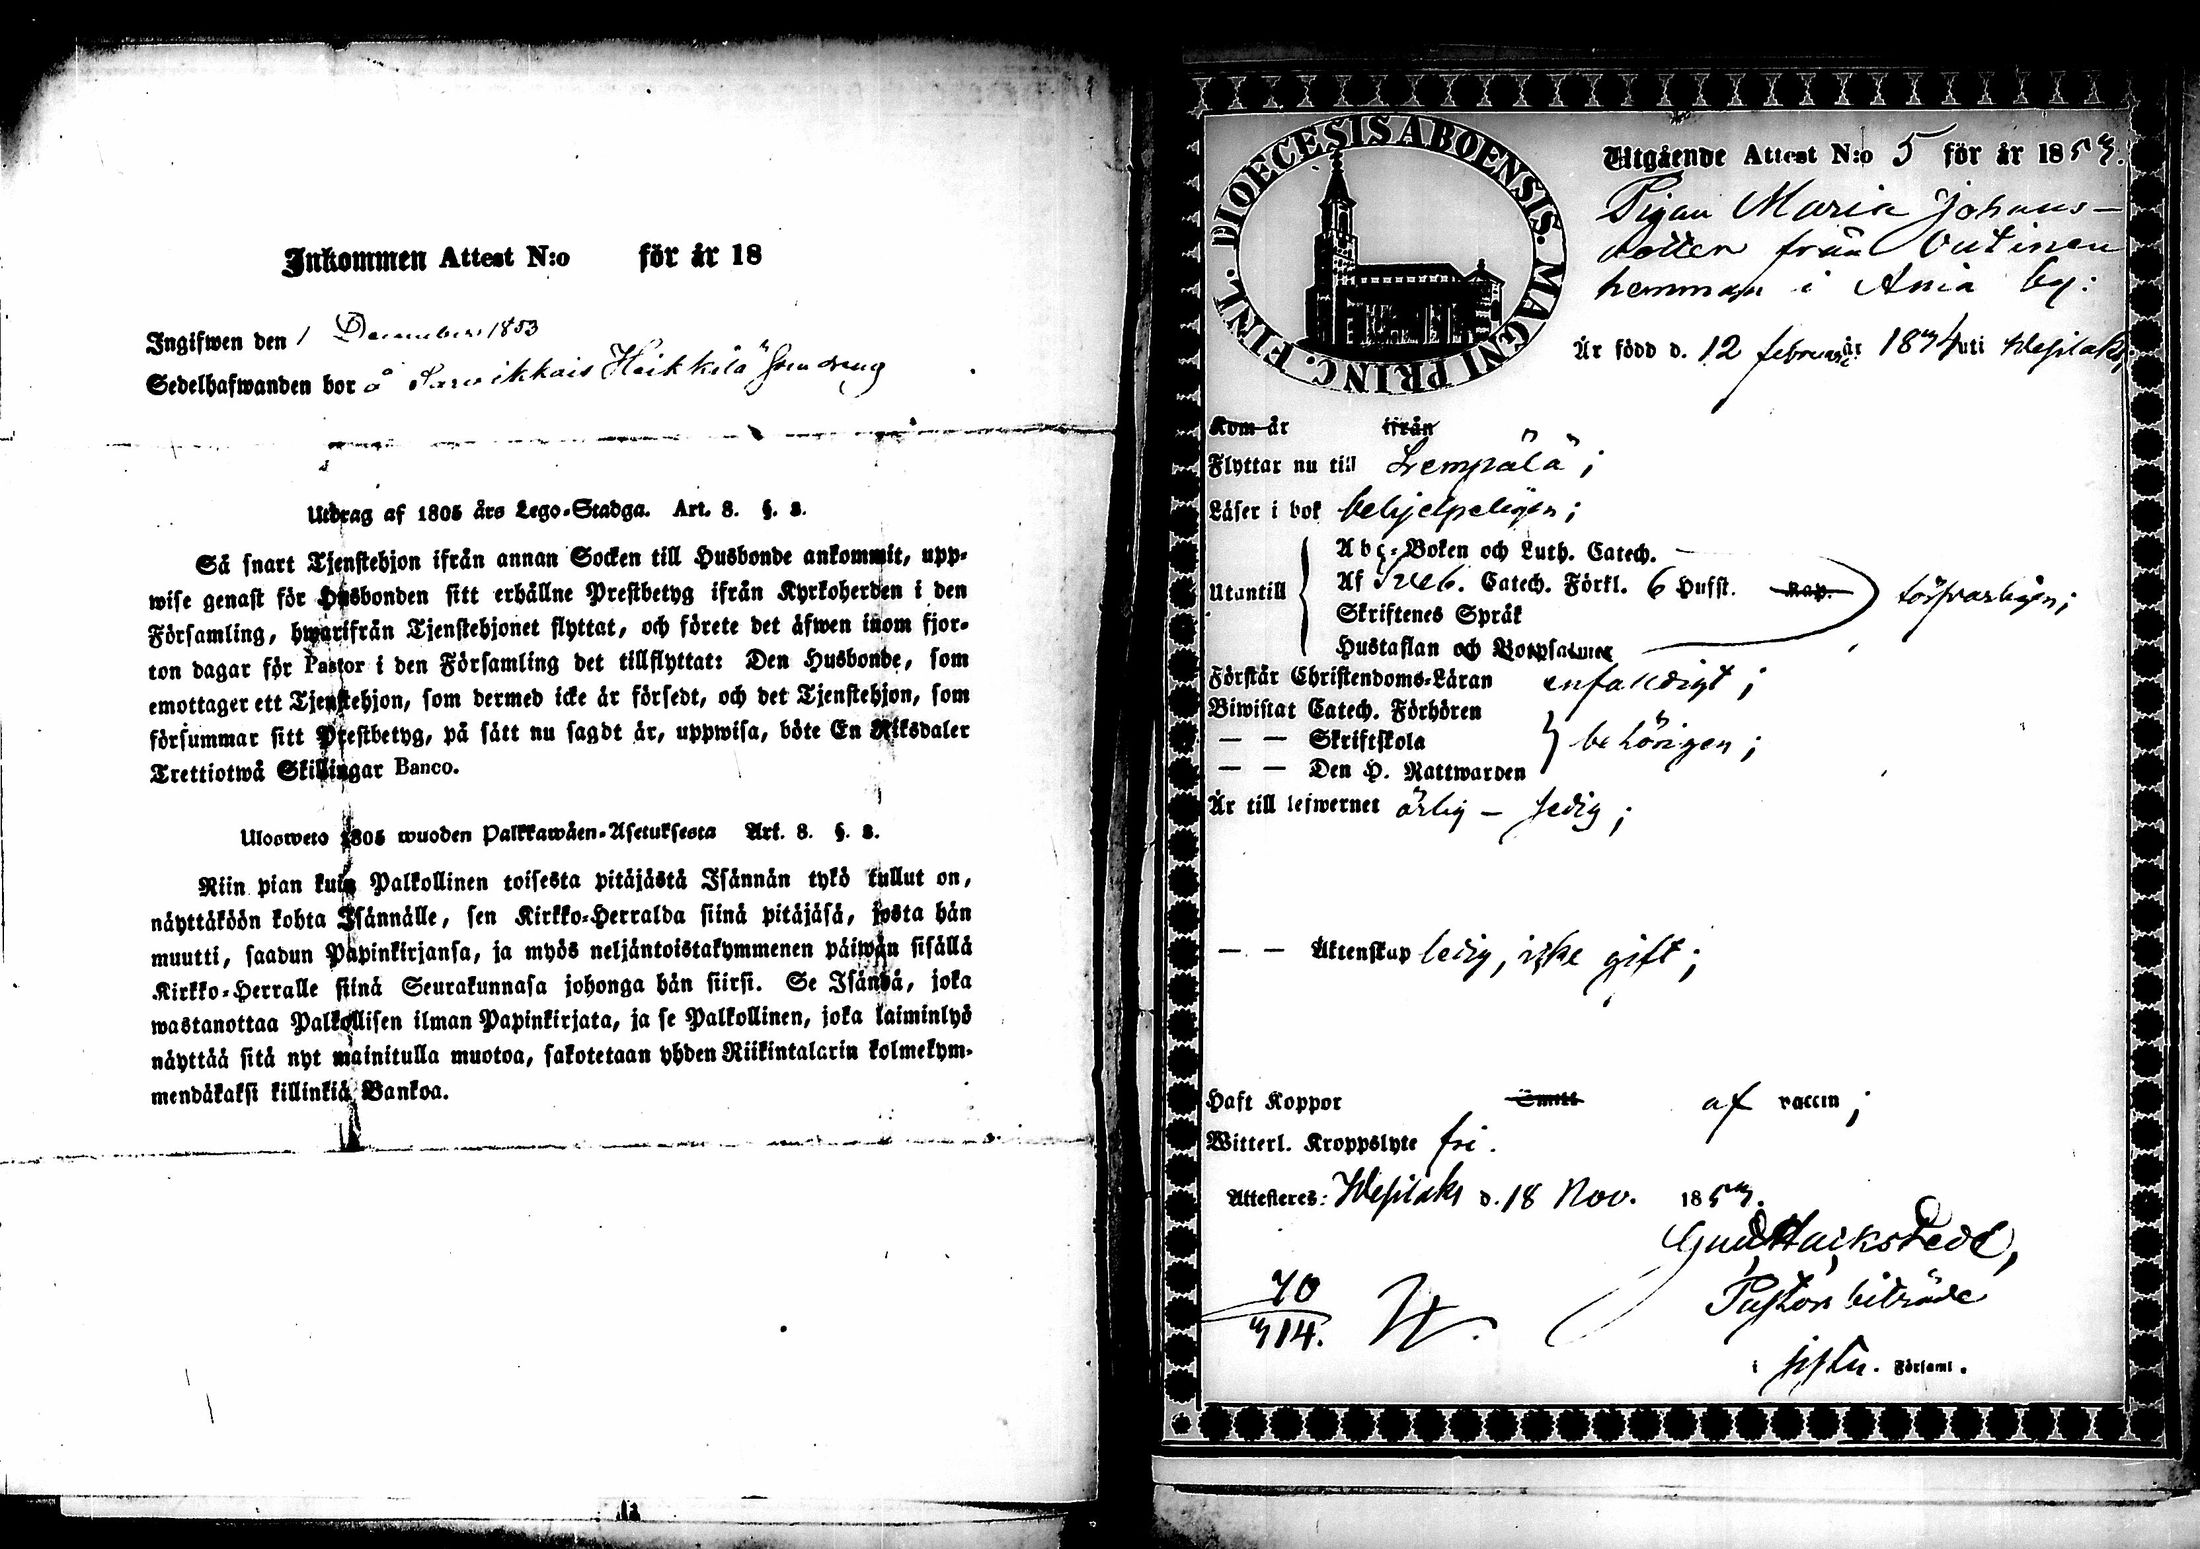 Inkommen Attest N:o för år 18
Ingifwen den 1 December 1853
Sedelhafwanden bor å Sarvikkais Heikkilä som dreng
Utdrag af 1805 års Lego-Stadga. Art. 8. §. 8.
Så snart Tjenstehjon ifrån annan Socken till Husbonde ankommit, upp-
wise genast för Husbonden sitt erhållne Prestbetyg ifrån Kyrkoherden i den
Församling, hwarifrån Tjenstehjonet flyttat, och förete det äfwen inom fjor-
ton dagar för Pastor i den Församling det tillflyttat: Den Husbonde, som
emottager ett Tjenstehjon, som dermed icke är försedt, och det Tjenstehjon, som
försummar sitt Prestbetyg, på sätt nu sagdt är, uppwisa, böte En Riksdaler
Trettiotwå Skillingar Banco.
Ulosweto 1805 wuoden Palkkawäen-Asetuksesta Art. 8. §. 8.
Niin pian kuin Palkollinen toisesta pitäjästä Isännän tykö tullut on,
näyttäköön kohta Isännälle, sen Kirkko-Herralda siinä pitäjäsä, josta hän
muutti, saadun Papinkirjansa, ja myös neljäntoistakymmenen päiwän sisällä
Kirkko-Herralle siinä Seurakunnasa johonga hän siirsi. Se Isändä, joka
wastanottaa Palkollisen ilman Papinkirjata, ja se Palkollinen, joka laiminlyö
näyttää sitä nyt mainitulla muotoa, sakotetaan yhden Riikintalarin kolmekym-
mendäkaksi killinkiä Bankoa.
DIOECESIS ABOENSIS. MAGNI PRINC. FINL.
Utgående Attest N:o 5 för år 1853.
Pigan Maria Johans-
dotter från Outinen
hemman i Ania by:
Är född d. 12 februari år 1834 uti Wesilaks;
Kom år ifrån
Flyttar nu till Lempälä;
Läser i bok behjelpeligen;
Abc-Boken och Luth. Catech.
Utantill Af Sveb. Catech. Förkl. 6 Hufst. Kap. försvarligen;
Skriftenes Språk
Hustaflan och Botpsalmer
Förstår Christendoms-Läran enfaldigt;
Biwistat Catech. Förhören
— — Skriftskola behörigen;
— — Den H. Nattwarden
Är till lefwernet ärlig – sedig;
— — Äktenskap ledig, icke gift;
Haft Koppor Smitt af vaccin;
Witterl. Kroppslyte fri.
Attesteres: Wesilaks d. 18 Nov. 1853.
Hackstedt,
Pastors biträde
i Församl.
70
314.